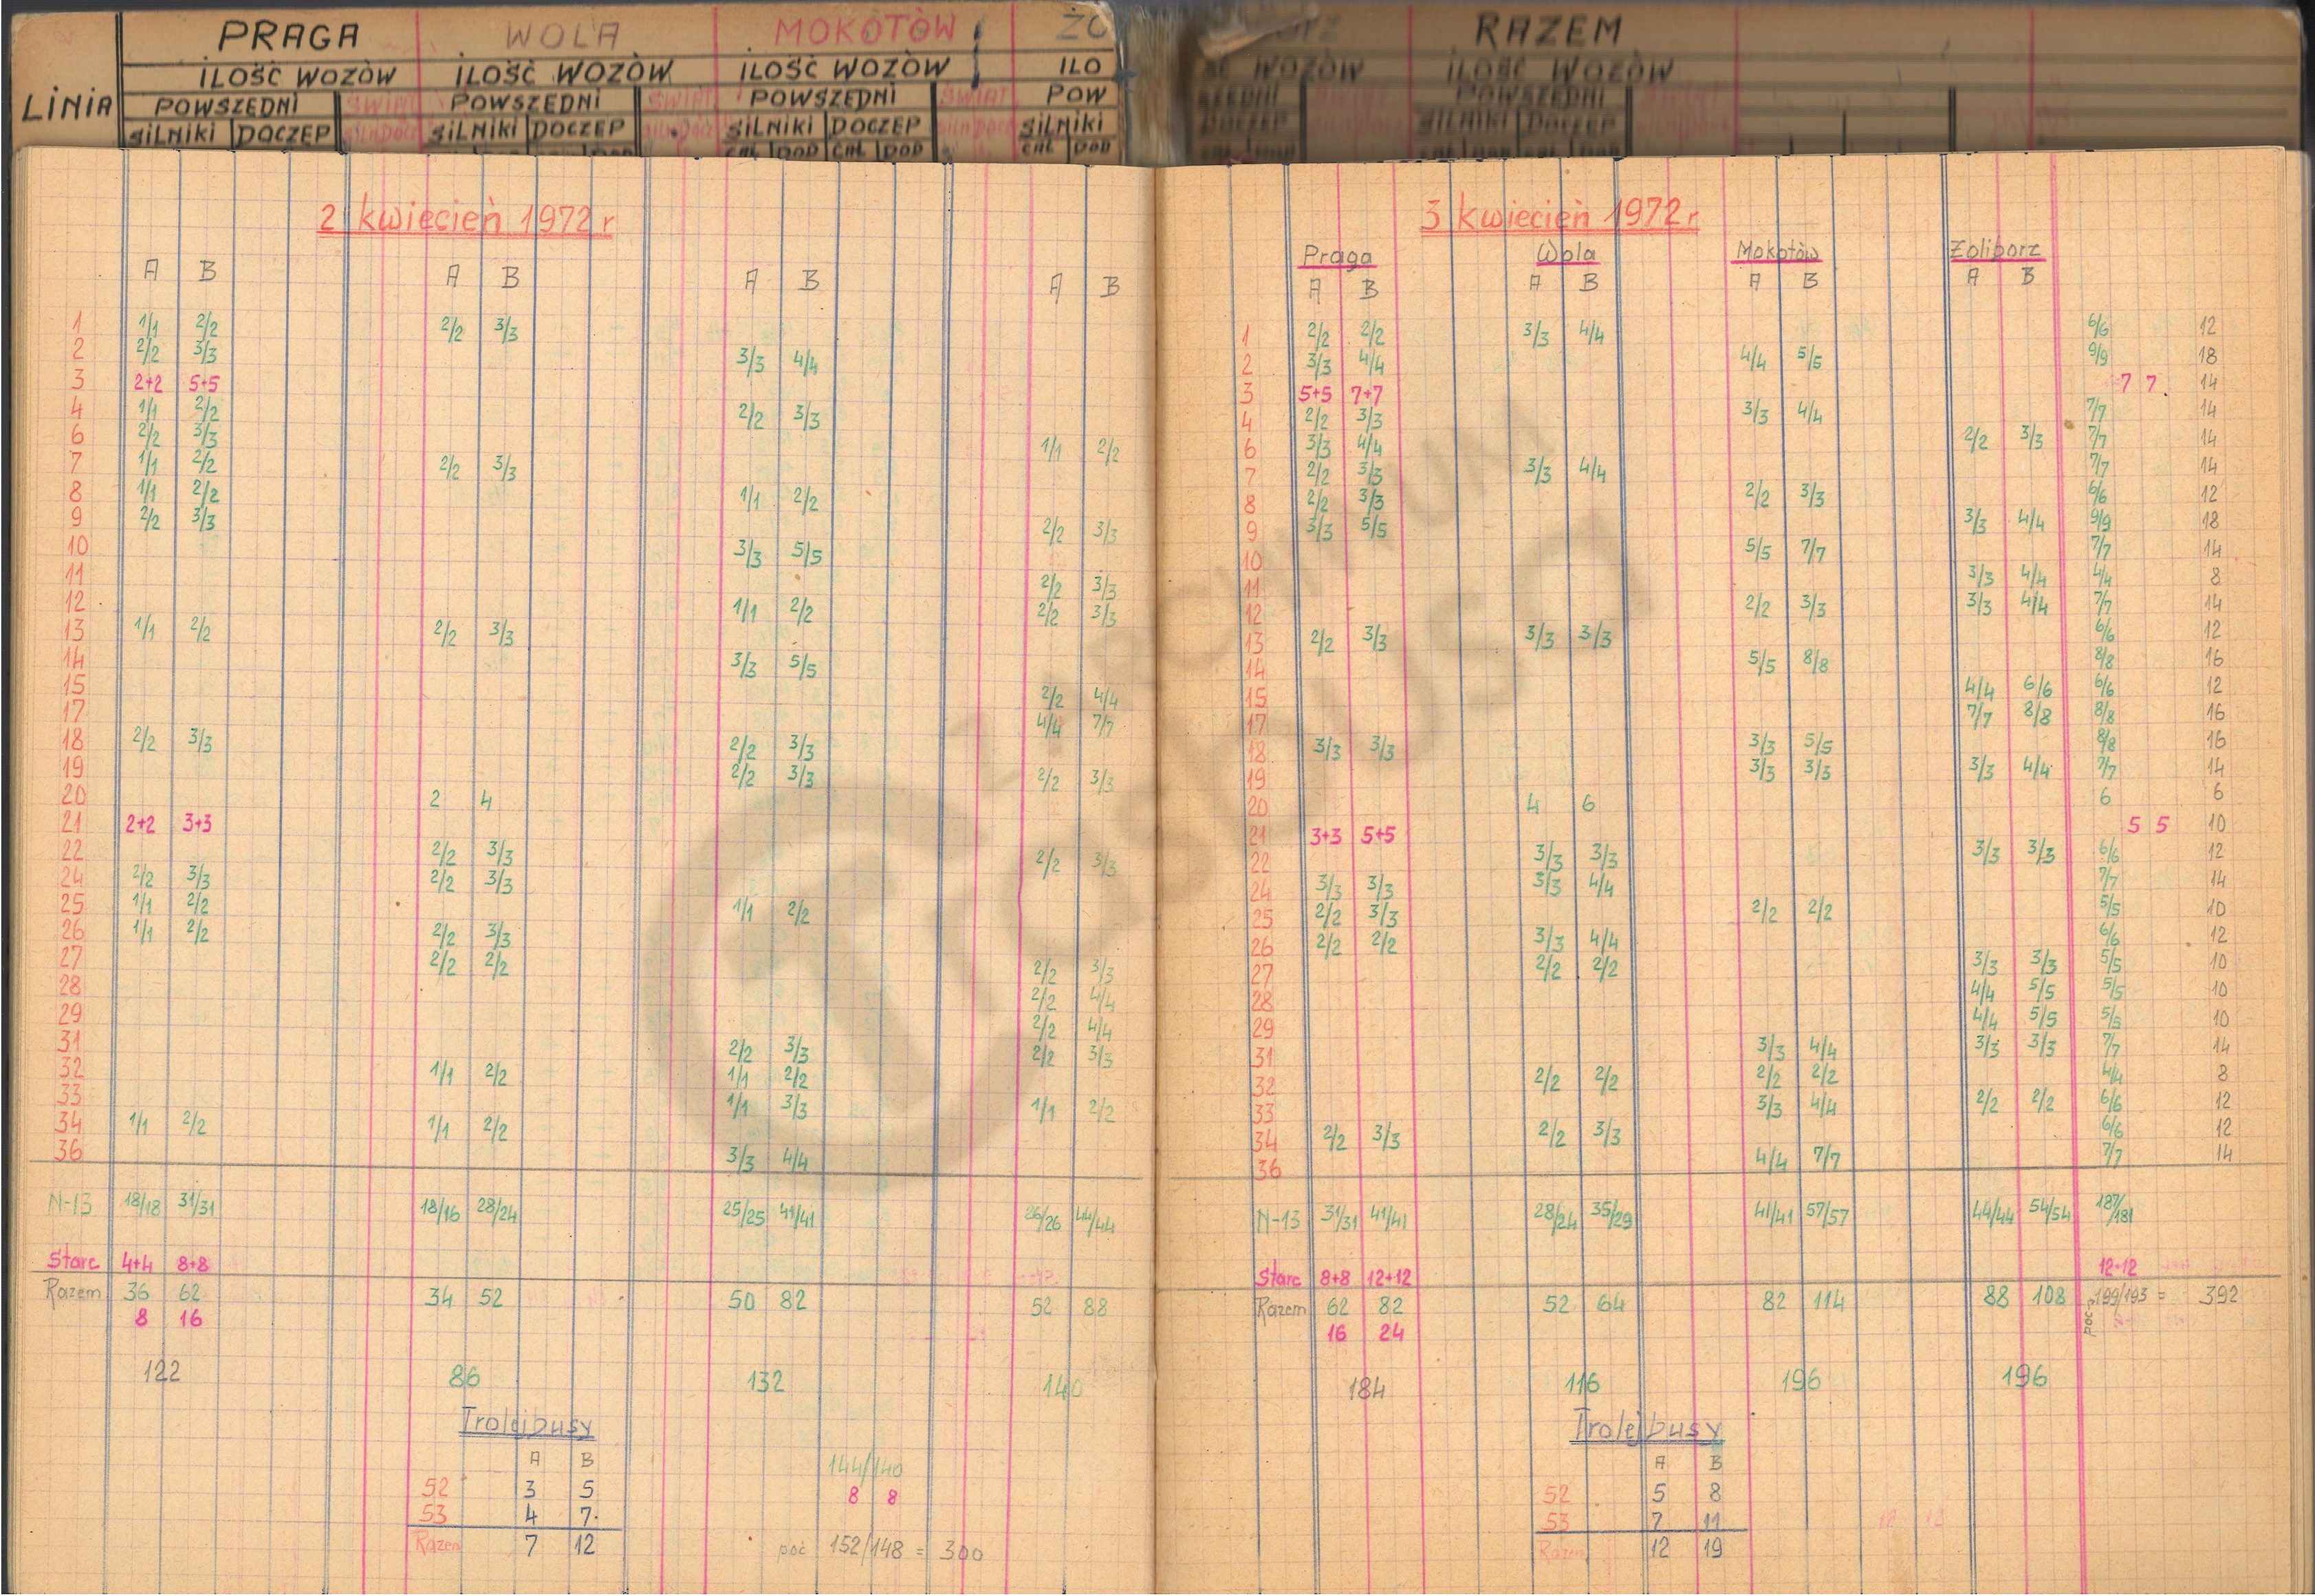 PRAGA WOLA MOKOTÓW ŻO RAZEM
ILOŚĆ WOZÓW ILOŚĆ WOZÓW ILOŚĆ WOZÓW ILO WOZÓW ILOŚĆ WOZÓW
LINIA POWSZEDNI ŚWIĄT POWSZEDNI ŚWIĄT POWSZEDNI ŚWIĄT POW POWSZEDNI
SILNIKI DOCZEP SILNIKI DOCZEP SILNIKI DOCZEP SILNIKI DOCZEP SILNIKI DOCZEP
CAŁ DOD CAŁ DOD CAŁ DOD
2 kwiecień 1972 r
A B A B A B A B
1 1/1 2/2 2/2 3/3
2 2/2 3/3 3/3 4/4
3 2+2 5+5
4 1/1 2/2 2/2 3/3
6 2/2 3/3 1/1 2/2
7 1/1 2/2 2/2 3/3
8 1/1 2/2 1/1 2/2
9 2/2 3/3 2/2 3/3
10 3/3 5/5
11 2/2 3/3
12 1/1 2/2 2/2 3/3
13 1/1 2/2 2/2 3/3
14 3/3 5/5
15 2/2 4/4
17 4/4 7/7
18 2/2 3/3 2/2 3/3
19 2/2 3/3 2/2 3/3
20 2 4
21 2+2 3+3
22 2/2 3/3 2/2 3/3
24 2/2 3/3 2/2 3/3
25 1/1 2/2 1/1 2/2
26 1/1 2/2 2/2 3/3
27 2/2 2/2 2/2 3/3
28 2/2 4/4
29 2/2 4/4
31 2/2 3/3 2/2 3/3
32 1/1 2/2 1/1 2/2
33 1/1 3/3 1/1 2/2
34 1/1 2/2 1/1 2/2
36 3/3 4/4
N-13 18/18 31/31 18/16 28/24 25/25 41/41 26/26 44/44
Starc 4+4 8+8
Razem 36 62 34 52 50 82 52 88
8 16
122 86 132 140
Trolejbusy
A B
52 3 5
53 4 7
Razem 7 12
144/140
8 8
poć 152/148 = 300
3 kwiecień 1972 r
Praga Wola Mokotów Żoliborz
A B A B A B A B
1 2/2 2/2 3/3 4/4 6/6 12
2 3/3 4/4 4/4 5/5 9/9 18
3 5+5 7+7 7 7 14
4 2/2 3/3 3/3 4/4 7/7 14
6 3/3 4/4 2/2 3/3 7/7 14
7 2/2 3/3 3/3 4/4 7/7 14
8 2/2 3/3 2/2 3/3 6/6 12
9 3/3 5/5 3/3 4/4 9/9 18
10 5/5 7/7 7/7 14
11 3/3 4/4 4/4 8
12 2/2 3/3 3/3 4/4 7/7 14
13 2/2 3/3 3/3 3/3 6/6 12
14 5/5 8/8 8/8 16
15 4/4 6/6 6/6 12
17 7/7 8/8 8/8 16
18 3/3 3/3 3/3 5/5 8/8 16
19 3/3 3/3 3/3 4/4 7/7 14
20 4 6 6 6
21 3+3 5+5 5 5 10
22 3/3 3/3 3/3 3/3 6/6 12
24 3/3 3/3 3/3 4/4 7/7 14
25 2/2 3/3 2/2 2/2 5/5 10
26 2/2 2/2 3/3 4/4 6/6 12
27 2/2 2/2 3/3 3/3 5/5 10
28 4/4 5/5 5/5 10
29 4/4 5/5 5/5 10
31 3/3 4/4 3/3 3/3 7/7 14
32 2/2 2/2 2/2 2/2 4/4 8
33 3/3 4/4 2/2 2/2 6/6 12
34 2/2 3/3 2/2 3/3 6/6 12
36 4/4 7/7 7/7 14
N-13 31/31 41/41 28/24 35/29 41/41 57/57 44/44 54/54 187/181
Starc 8+8 12+12 12+12
Razem 62 82 52 64 82 114 88 108 poc 199/193 = 392
16 24
184 116 196 196
Trolejbusy
A B
52 5 8
53 7 11
Razem 12 19